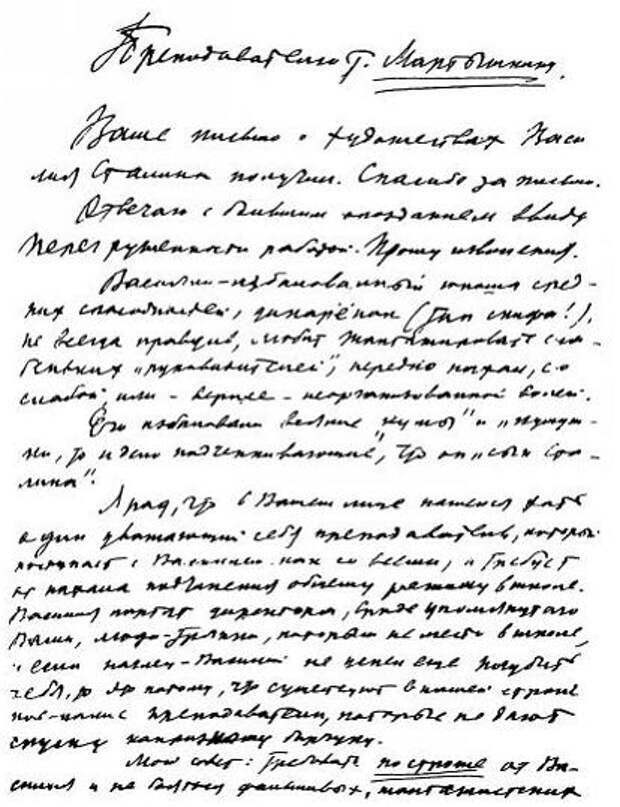 Преподавателю т. Мартышину.
Ваше письмо о художествах Васи-
лия Сталина получил. Спасибо за письмо.
Отвечаю с большим опозданием ввиду
перегруженности работой. Прошу извинения.
Василий – избалованный юноша сред-
них способностей, дикарёнок (тип скифа!),
не всегда правдив, любит шантажировать сла-
беньких „руководителей", нередко нахал, со
слабой, или – вернее – неорганизованной волей.
Его избаловали всякие „кумы" и „кумуш-
ки", то и дело подчеркивающие, что он „сын Ста-
лина".
Я рад, что в Вашем лице нашелся хоть
один уважающий себя преподаватель, который
поступает с Василием как со всеми, и требует
от нахала подчинения общему режиму в школе.
Василия портят директора, вроде упомянутого
Вами, люди-тряпки, которым не место в школе,
и если наглец-Василий не успел еще погубить
себя, то это потому, что существуют в нашей стране
кое-какие преподаватели, которые не дают
спуску капризному барчуку.
Мой совет: требовать построже от Ва-
силия и не бояться фальшивых, шантажистских